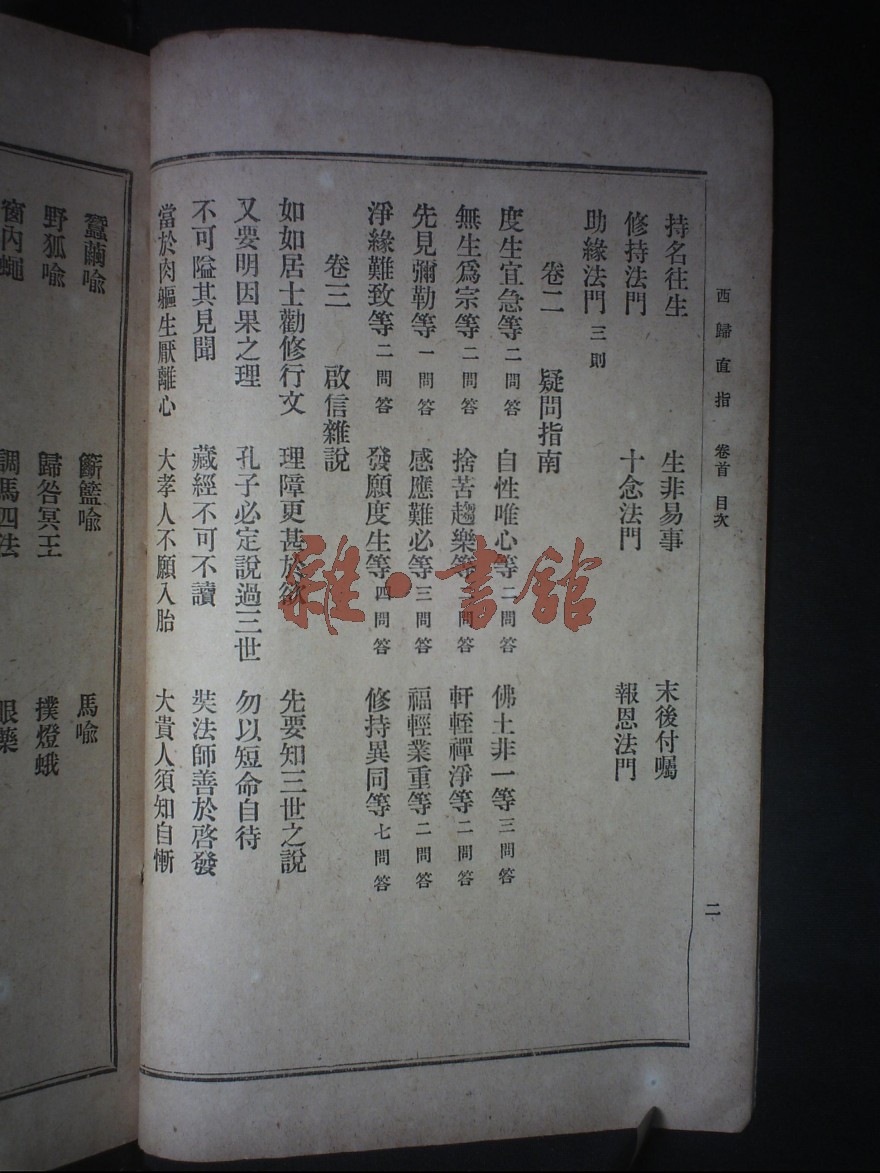 西歸直指 卷首 目次 二
持名往生 生非易事 末後付囑
修持法門 十念法門 報恩法門
助緣法門 三則
卷二 疑問指南
度生宜急等 二問答 自性唯心等 二問答 佛土非一等 三問答
無生爲宗等 二問答 捨苦趨樂等 問答 軒輊禪淨等 二問答
先見彌勒等 一問答 感應難必等 三問答 福輕業重等 二問答
淨緣難致等 二問答 發願度生等 四問答 修持異同等 七問答
卷三 啟信雜說
如如居士勸修行文 理障更甚於欲 先要知三世之說
又要明因果之理 孔子必定說過三世 勿以短命自待
不可隘其見聞 藏經不可不讀 奘法師善於啓發
當於肉軀生厭離心 大孝人不願入胎 大貴人須知自慚
蠶繭喻 籃喻 馬喻
野狐喻 歸咎冥王 撲燈蛾
窗內蠅 調馬四法 眼藥
雜·書館